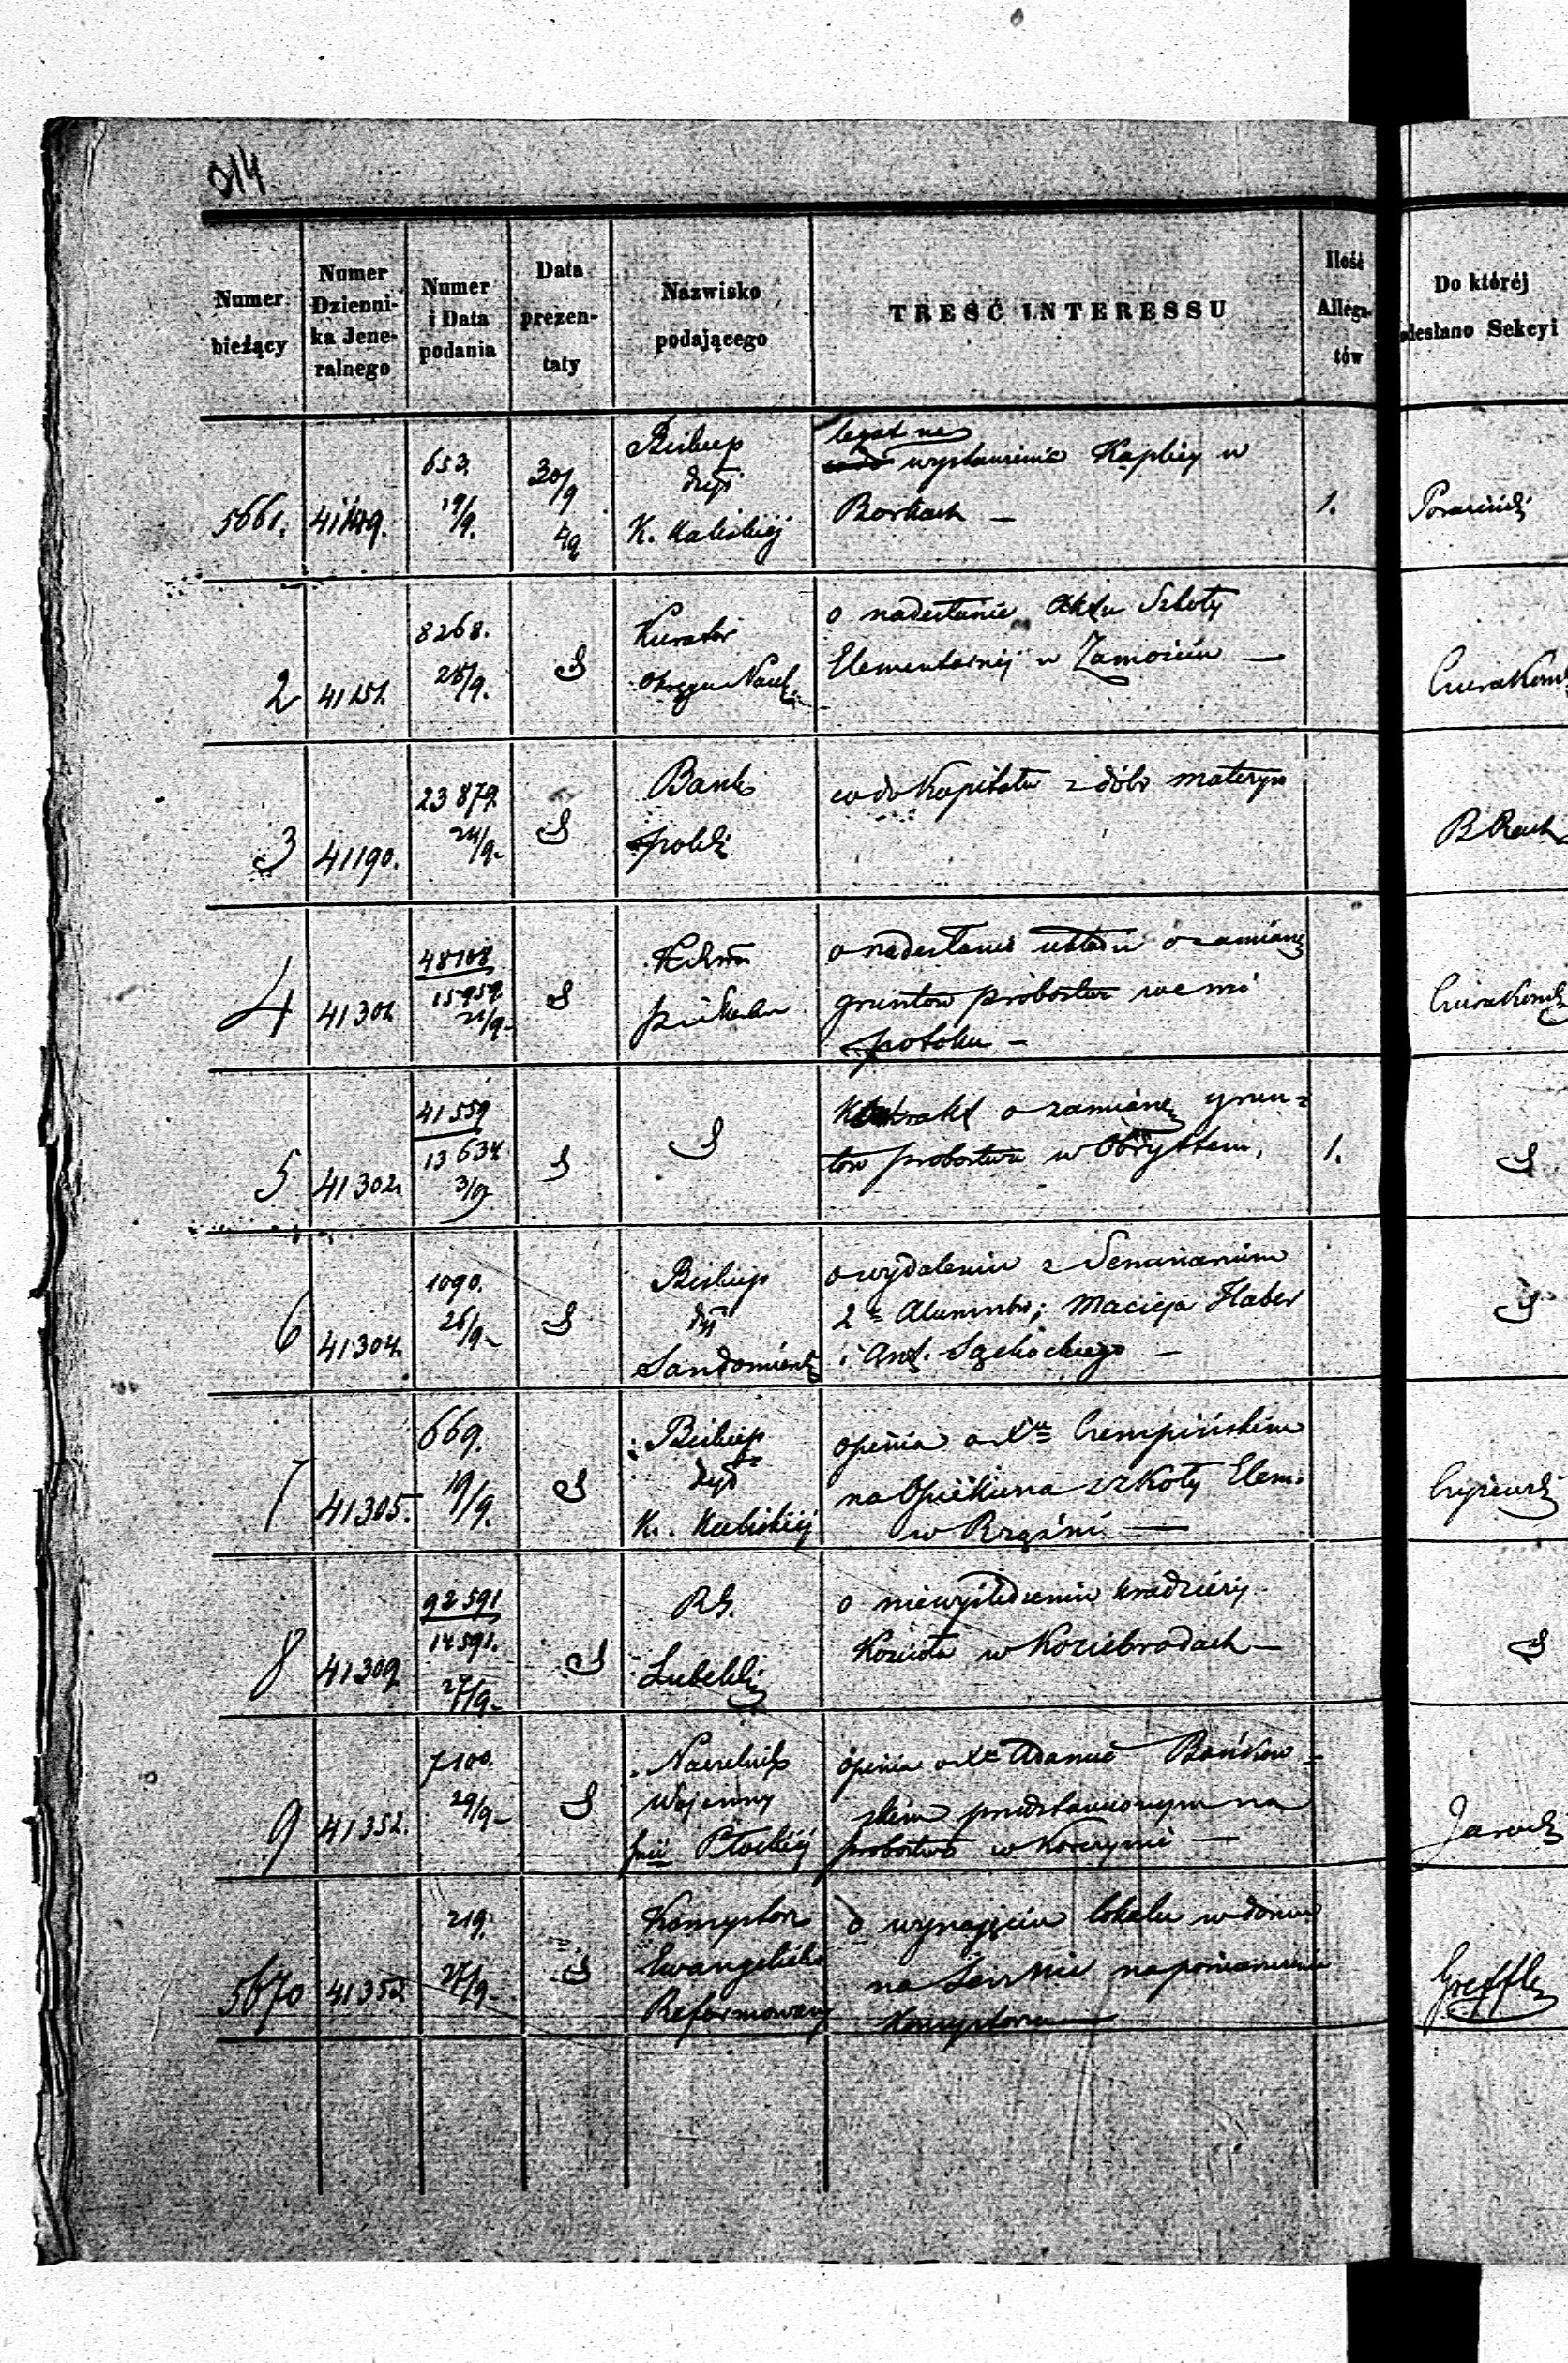 314
Numer bieżący
Numer Dzienni-ka Jene-ralnego
Numer i Data podania
Data prezen-taty
Nazwisko podającego
TREŚĆ INTERESSU
Ilość Allega-tów
Do któréj odesłano Sekcyi
5661. 653. 19/9. 30/9 49 Biskup dyi K. Kaliskiéj
legat na
wystawienie Kaplicy w
Borkach — 1.
2 41251. 8268. 28/9. Kurator Okręgu Nauk.
o nadesłanie Aktu Szkoły
Elementarnéj w Zamościu —
3 41190. 23879. 24/9- Bank polski
co do Kapitału z dóbr
4 41301. 48708 15959. 21/9-
o nadesłanie układu o zamianę
gruntów probostwa we wsi
potoku —
5 41302. 41559 13634 3/9
Kontrakt o zamianę grun-
tów probostwa w Obrytem, 1.
6 41304. 1090. 26/9- Biskup dyi Sandomiersk
o wydaleniu z Seminarium
2ch Alumnów; Macieja Haber
i Ant. Sąchockiego —
7 41305. 669. 19/9. Biskup dyi K. Kaliskiéj
opinia o Xu Crempińskim
na Opiekuna szkoły Elem.
w Rząśni —
8 41309. 92591 14591. 27/9- RG. Lubelski
o niewyśledzeniu kradzieży
Kościoła w Koziebrodach —
9 41352. 7100. 29/9- Naczelnik Wojenny Płockiéj
opinia o Xu Adamie Bańkow-
skim przedstawionym na
probostwo w
5670 41353. 219. 27/9- Konsystorz Ewangelicko Reformowany
o wynajęciu lokalu w domu
na Lesznie na pomieszczenie
Konsystorza —